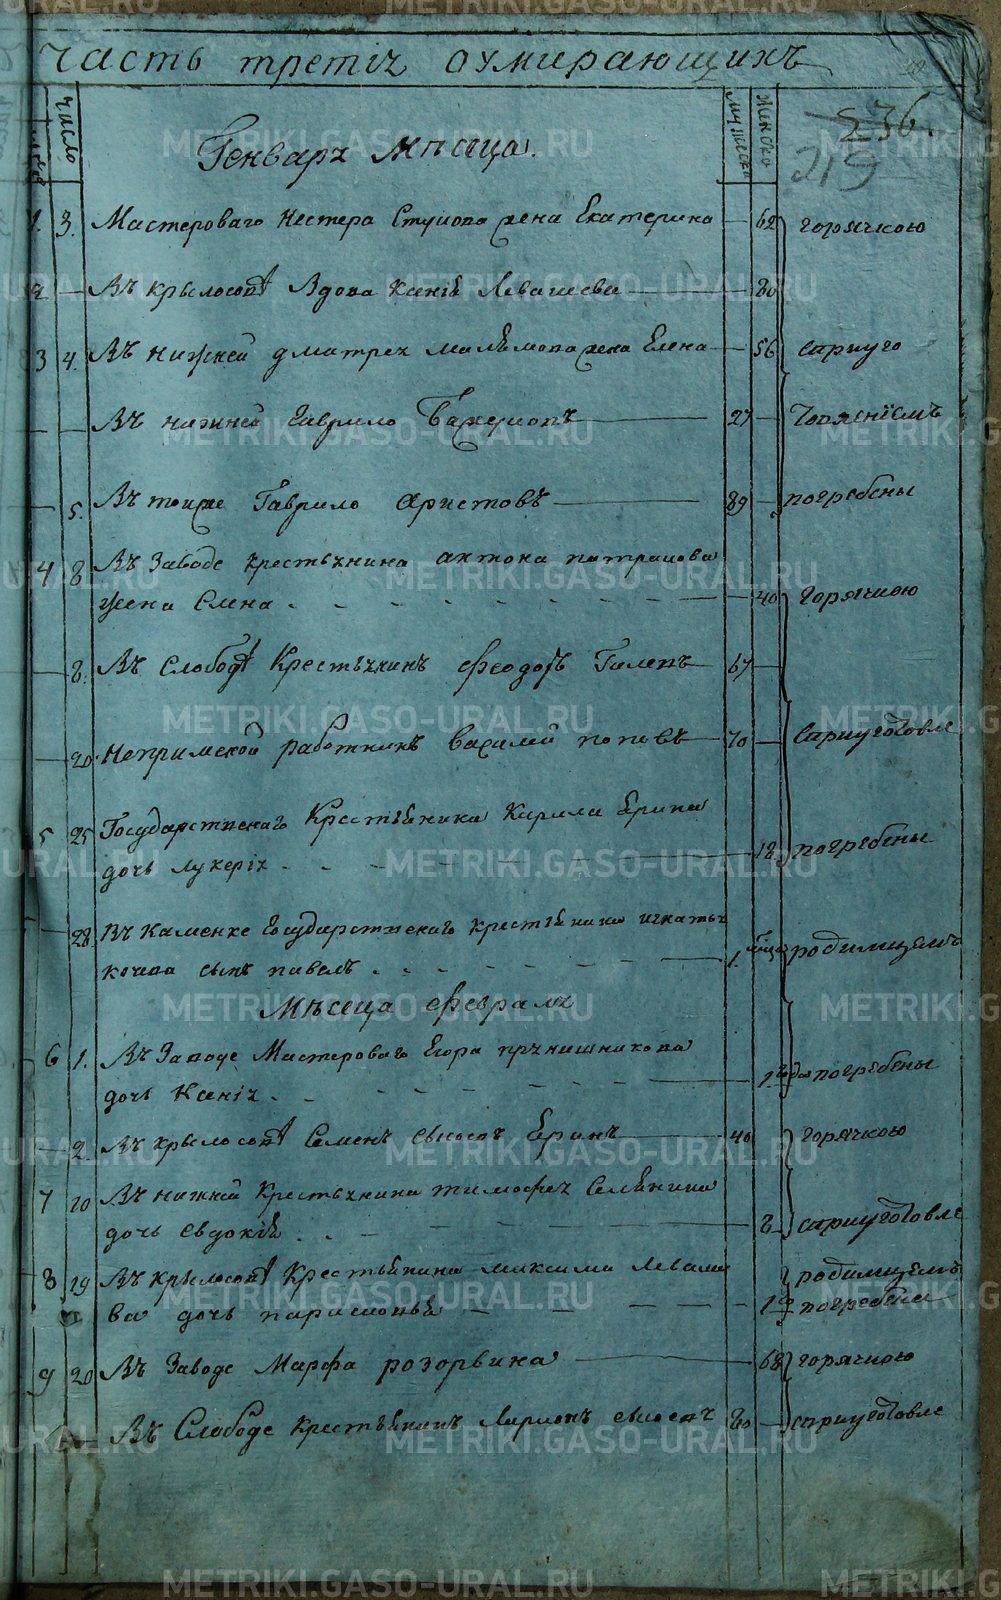 часть третія оумирающихъ
число
мужеска
женска
236.
219
Генваря мѣсяца.
1. 3. Мастероваго Нестера жена Екатерина — 62 горячкою
2 — Въ крылосовѣ Вдова Ксенія Левашева — 80
3 4. Въ нижней дмитрея жена Елена — 56 спричо
— — Въ нижней Гаврило — 27 —
— 5. Въ тоиже Гаврило Аристовъ — 89 — погребены
4 8 Въ Заводе крестьянина антона патракова
жена Елена — 40 горячкою
— 8. Въ слободѣ Крестьянинъ Феодоръ — 67 —
— 20. работникъ василей поповъ — 70 — спричостовле
5 25 Государственаго Крестьянина Кирила Ерина
дочь лукерія — 18 погребены
— 28. Въ Каменке государственаго крестьянина игнатья
сынъ павелъ — 1. родимцемъ
Мѣсеца Февраля
6 1. Въ Заводе Мастероваго Егора прянишникова
дочь Ксенія — 1. года погребены
— 2 Въ крылосовѣ Семенъ Еринъ — 40 горячкою
7 10 Въ нижней Крестьянина тимофея Селянина
дочь Евдокія — 8 спричостовле
8 19 Въ крылосовѣ Крестьянина максима Леваше
ва дочь — 1 родимцемъ
погребены
9 20 Въ Заводе Марфа розорвина — 68 горячкою
— Въ Слободе крестьянинъ Ларионъ — 80 — спричостовле
METRIKI.GASO-URAL.RU